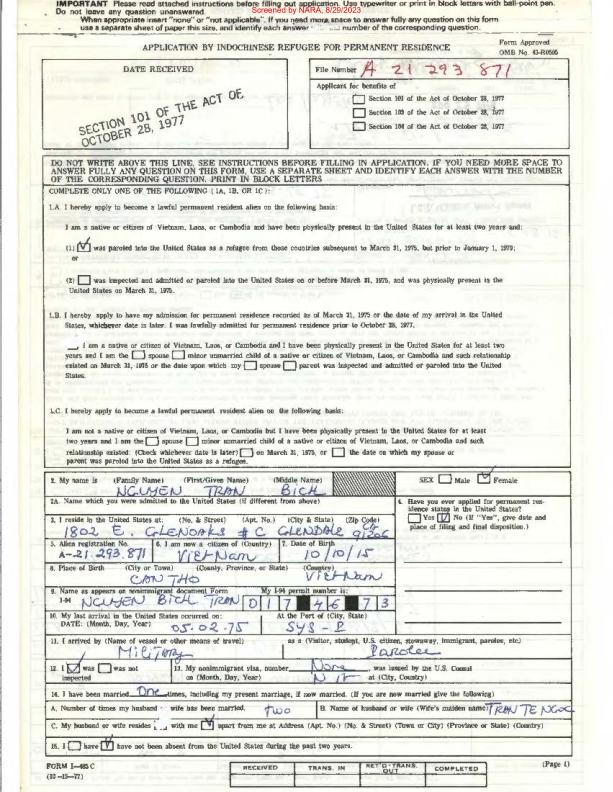 IMPORTANT Please read attached instructions before filling out application. Use typewriter or print in block letters with ball-point pen.
Do not leave any question unanswered.
Screened by NARA, 8/29/2023
When appropriate insert "none" or "not applicable". If you need more space to answer fully any question on this form
use a separate sheet of paper this size, and identify each answer number of the corresponding question.
APPLICATION BY INDOCHINESE REFUGEE FOR PERMANENT RESIDENCE
Form Approved
OMB No. 43-R0595
DATE RECEIVED
SECTION 101 OF THE ACT OF
OCTOBER 28, 1977
File Number A 21 293 871
Applicant for benefits of
Section 101 of the Act of October 28, 1977
Section 103 of the Act of October 28, 1977
Section 104 of the Act of October 28, 1977
DO NOT WRITE ABOVE THIS LINE. SEE INSTRUCTIONS BEFORE FILLING IN APPLICATION. IF YOU NEED MORE SPACE TO
ANSWER FULLY ANY QUESTION ON THIS FORM, USE A SEPARATE SHEET AND IDENTIFY EACH ANSWER WITH THE NUMBER
OF THE CORRESPONDING QUESTION. PRINT IN BLOCK LETTERS
COMPLETE ONLY ONE OF THE FOLLOWING (1A, 1B, OR 1C):
1.A. I hereby apply to become a lawful permanent resident alien on the following basis:
I am a native or citizen of Vietnam, Laos, or Cambodia and have been physically present in the United States for at least two years and:
(1) was paroled into the United States as a refugee from those countries subsequent to March 31, 1975, but prior to January 1, 1979;
or
(2) was inspected and admitted or paroled into the United States on or before March 31, 1975, and was physically present in the
United States on March 31, 1975.
1.B. I hereby apply to have my admission for permanent residence recorded as of March 31, 1975 or the date of my arrival in the United
States, whichever date is later. I was lawfully admitted for permanent residence prior to October 28, 1977.
I am a native or citizen of Vietnam, Laos, or Cambodia and I have been physically present in the United States for at least two
years and I am the spouse minor unmarried child of a native or citizen of Vietnam, Laos, or Cambodia and such relationship
existed on March 31, 1975 or the date upon which my spouse parent was inspected and admitted or paroled into the United
States.
1.C. I hereby apply to become a lawful permanent resident alien on the following basis:
I am not a native or citizen of Vietnam, Laos, or Cambodia but I have been physically present in the United States for at least
two years and I am the spouse minor unmarried child of a native or citizen of Vietnam, Laos, or Cambodia and such
relationship existed: (Check whichever date is later) on March 31, 1975, or the date on which my spouse or
parent was paroled into the United States as a refugee.
2. My name is (Family Name) (First/Given Name) (Middle Name)
NGUYEN TRAN BICH
SEX Male Female
2A. Name which you were admitted to the United States (if different from above)
4. Have you ever applied for permanent residence
status in the United States?
Yes No (If "Yes", give date and
place of filing and final disposition.)
3. I reside in the United States at: (No. & Street) (Apt. No.) (City & State) (Zip Code)
1802 E. GLENOAKS # C GLENDALE CA 91206
5. Alien registration No. 6. I am now a citizen of (Country) 7. Date of Birth
A-21.293.871 VietNam 10/10/15
8. Place of Birth (City or Town) (County, Province, or State) (Country)
CAN THO VietNam
9. Name as appears on nonimmigrant document Form My I-94 permit number is:
I-94 NGUYEN BICH TRAN D17 46 73
10. My last arrival in the United States occurred on: At the Port of (City, State)
DATE: (Month, Day, Year) 05.02.75 SYS-P
11. I arrived by (Name of vessel or other means of travel) as a (Visitor, student, U.S. citizen, stowaway, immigrant, parolee, etc.)
Military Parolee
12. I was was not
inspected
13. My nonimmigrant visa, number None, was issued by the U.S. Consul
on (Month, Day, Year) at (City, Country)
14. I have been married One times, including my present marriage, if now married. (If you are now married give the following)
A. Number of times my husband wife has been married. two B. Name of husband or wife (Wife's maiden name) TRAN TE NGOC
C. My husband or wife resides with me apart from me at Address (Apt. No.) (No. & Street) (Town or City) (Province or State) (Country)
15. I have have not been absent from the United States during the past two years.
FORM I-485 C
(10-15-77)
RECEIVED TRANS. IN RET'D-TRANS. OUT COMPLETED
(Page 1)